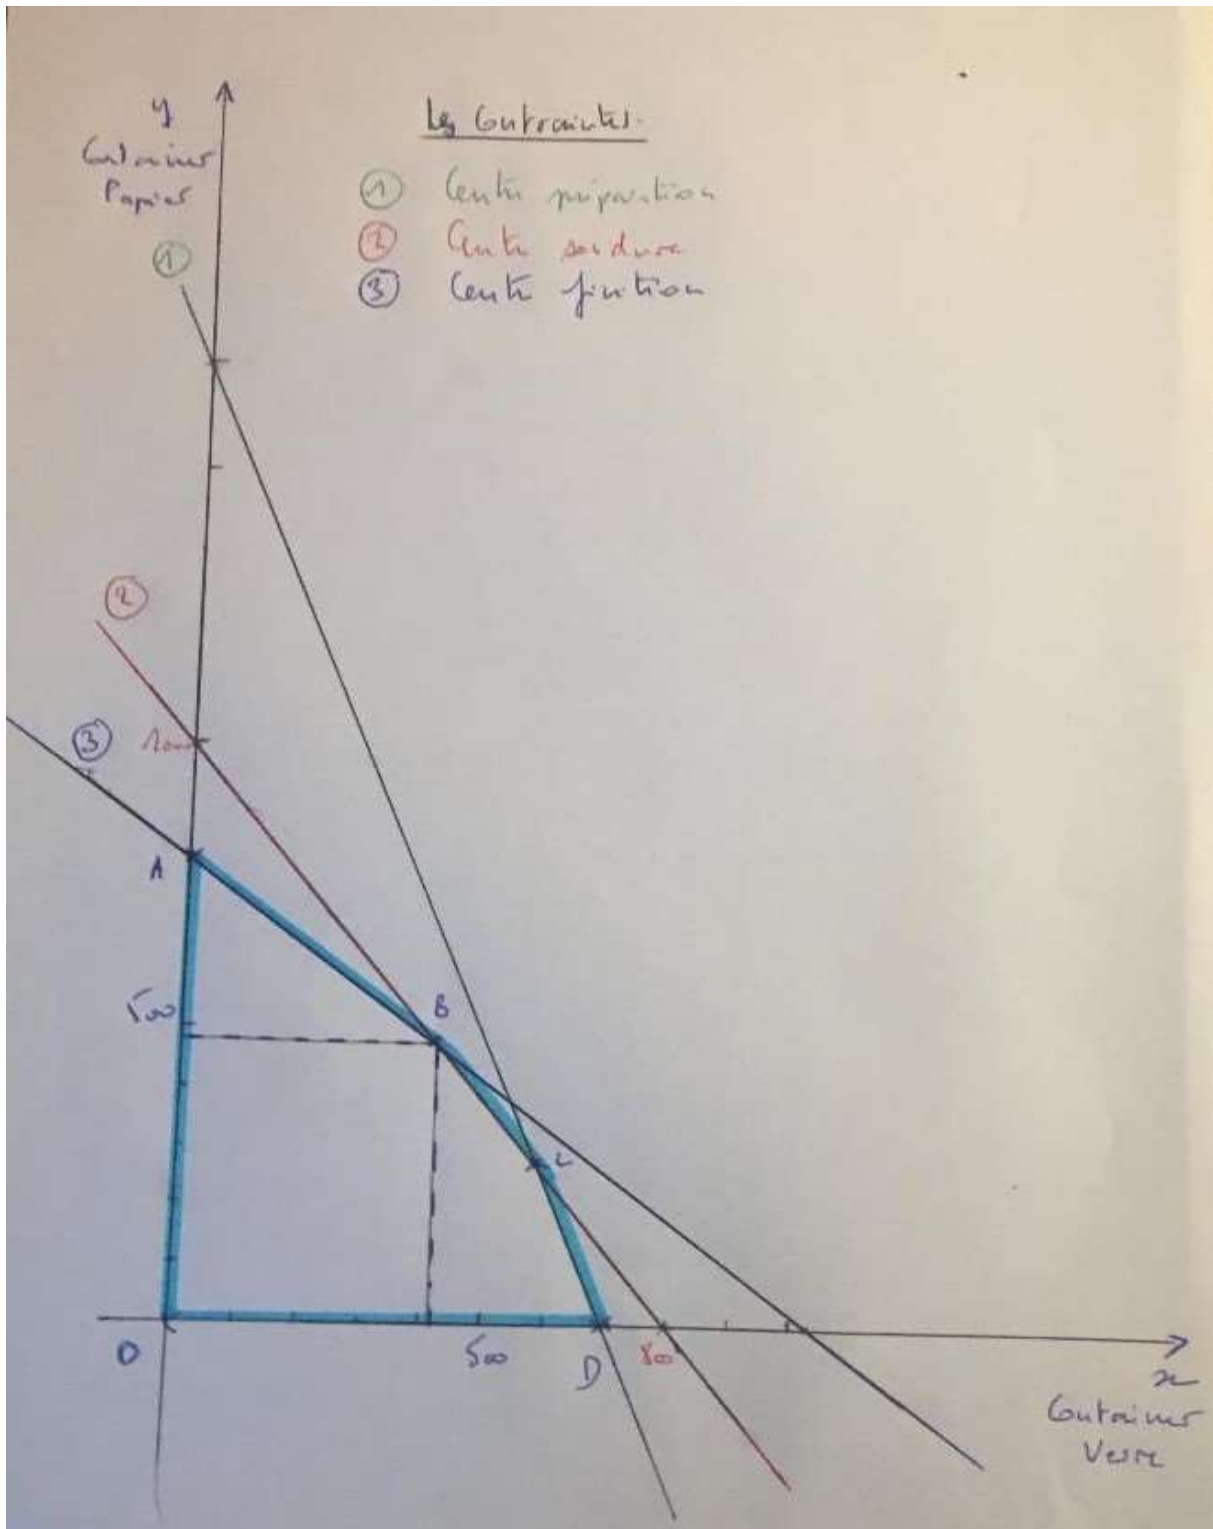 y
Containers
Papier
Les Contraintes.
① Centre préparation
② Centre soudure
③ Centre finition
①
②
③
1000
A
500
B
C
O
500
D
800
x
Containers
Verre